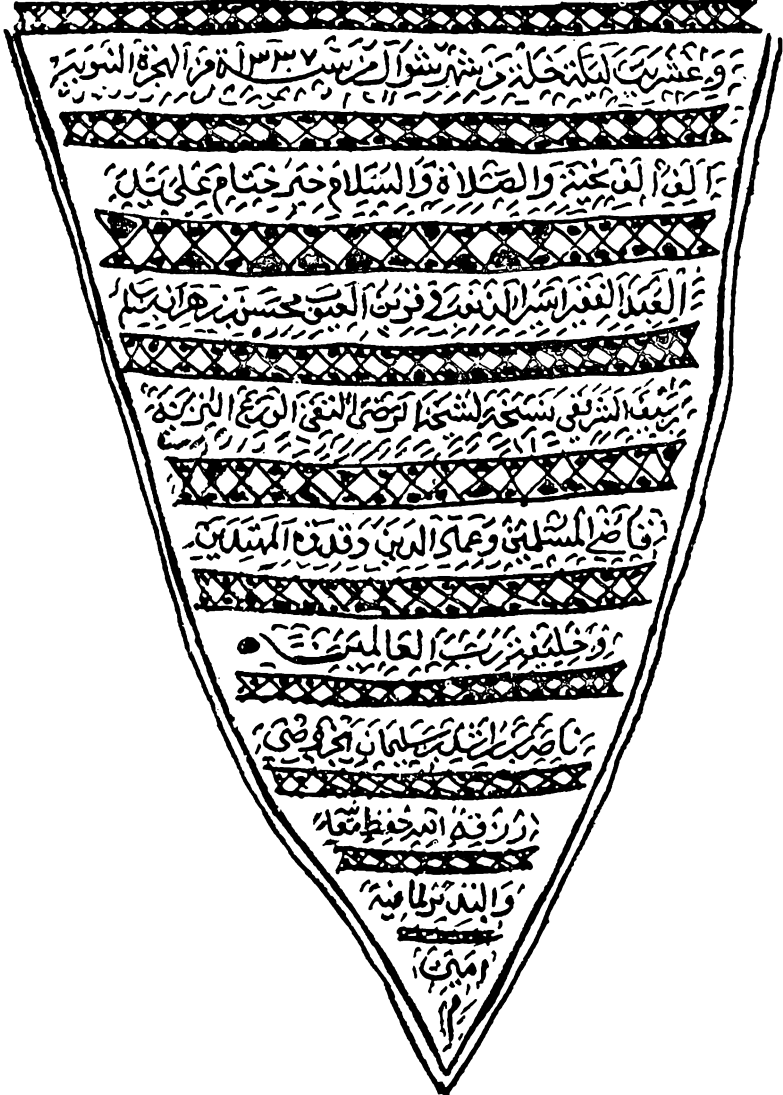 وعشرين ليلة خلت من شهر شوال من سنة ١٣٣٧ من الهجرة النبوية
ألف ألف تحية والصلاة والسلام ختم ختام على يد
العبد الفقير أسير الذنوب محسن بن زهران بن
سيف الشريقي نسخته لشيخه الرضي التقي الورع النزيه
قاضي المسلمين وعماد الدين وقدوة المهتدين
وخليفة رب العالمين
ناصر بن راشد بن سليمان الخروصي
رزقه الله حفظ معا
والتدبر لما فيه
امين
م